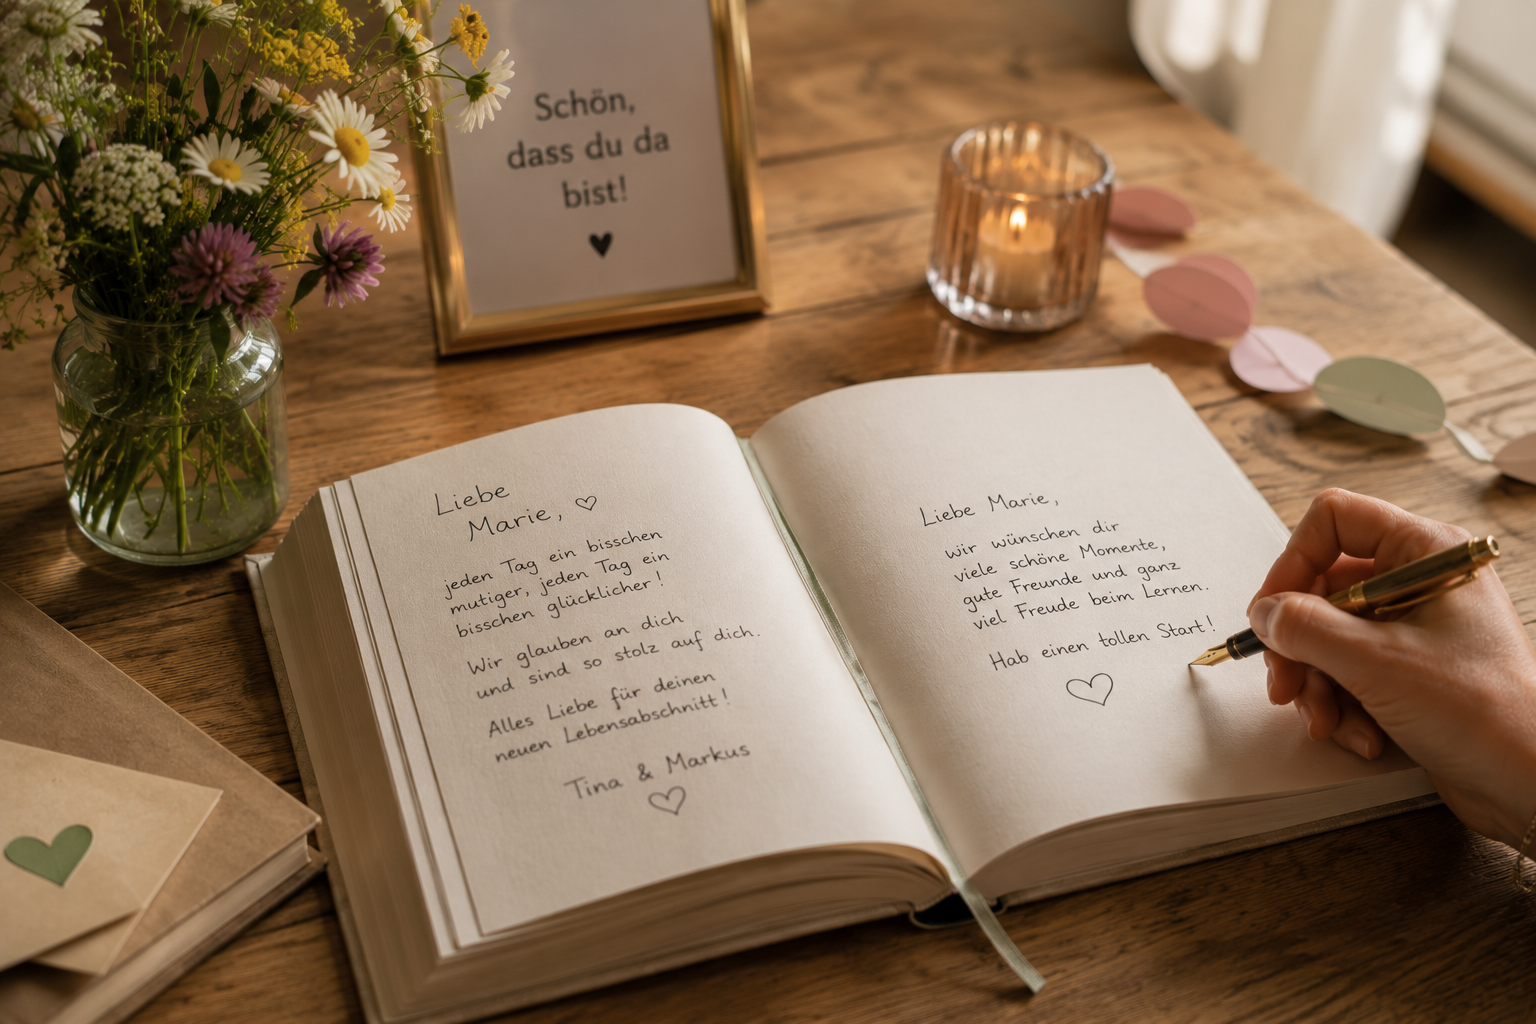 Schön,
dass du da
bist!
Liebe
Marie,
jeden Tag ein bisschen
mutiger, jeden Tag ein
bisschen glücklicher!
Wir glauben an dich
und sind so stolz auf dich.
Alles Liebe für deinen
neuen Lebensabschnitt!
Tina & Markus
Liebe Marie,
wir wünschen dir
viele schöne Momente,
gute Freunde und ganz
viel Freude beim Lernen.
Hab einen tollen Start!